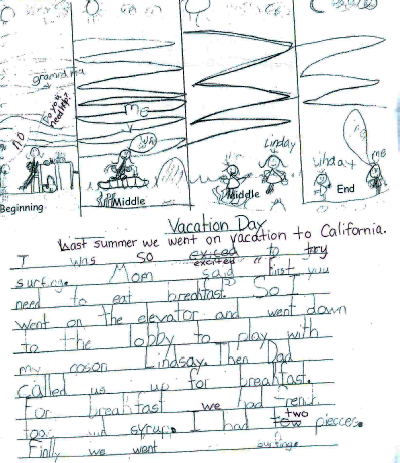 grandma
Do you need help?
NO
me
Linday
Linday
me
Beginning
Middle
Middle
End
Vacation Day
Last summer we went on vacation to California.
I was so exiced to try
excited
surfing. Mom said "First you
need to eat breakfast." So I
went on the elevator and went down
to the lobby to play with
my coson Lindsay. Then Dad
called us up for breakfast.
For breakfast we had french
two
syrup. I had few piesces.
Finlly we went surfing